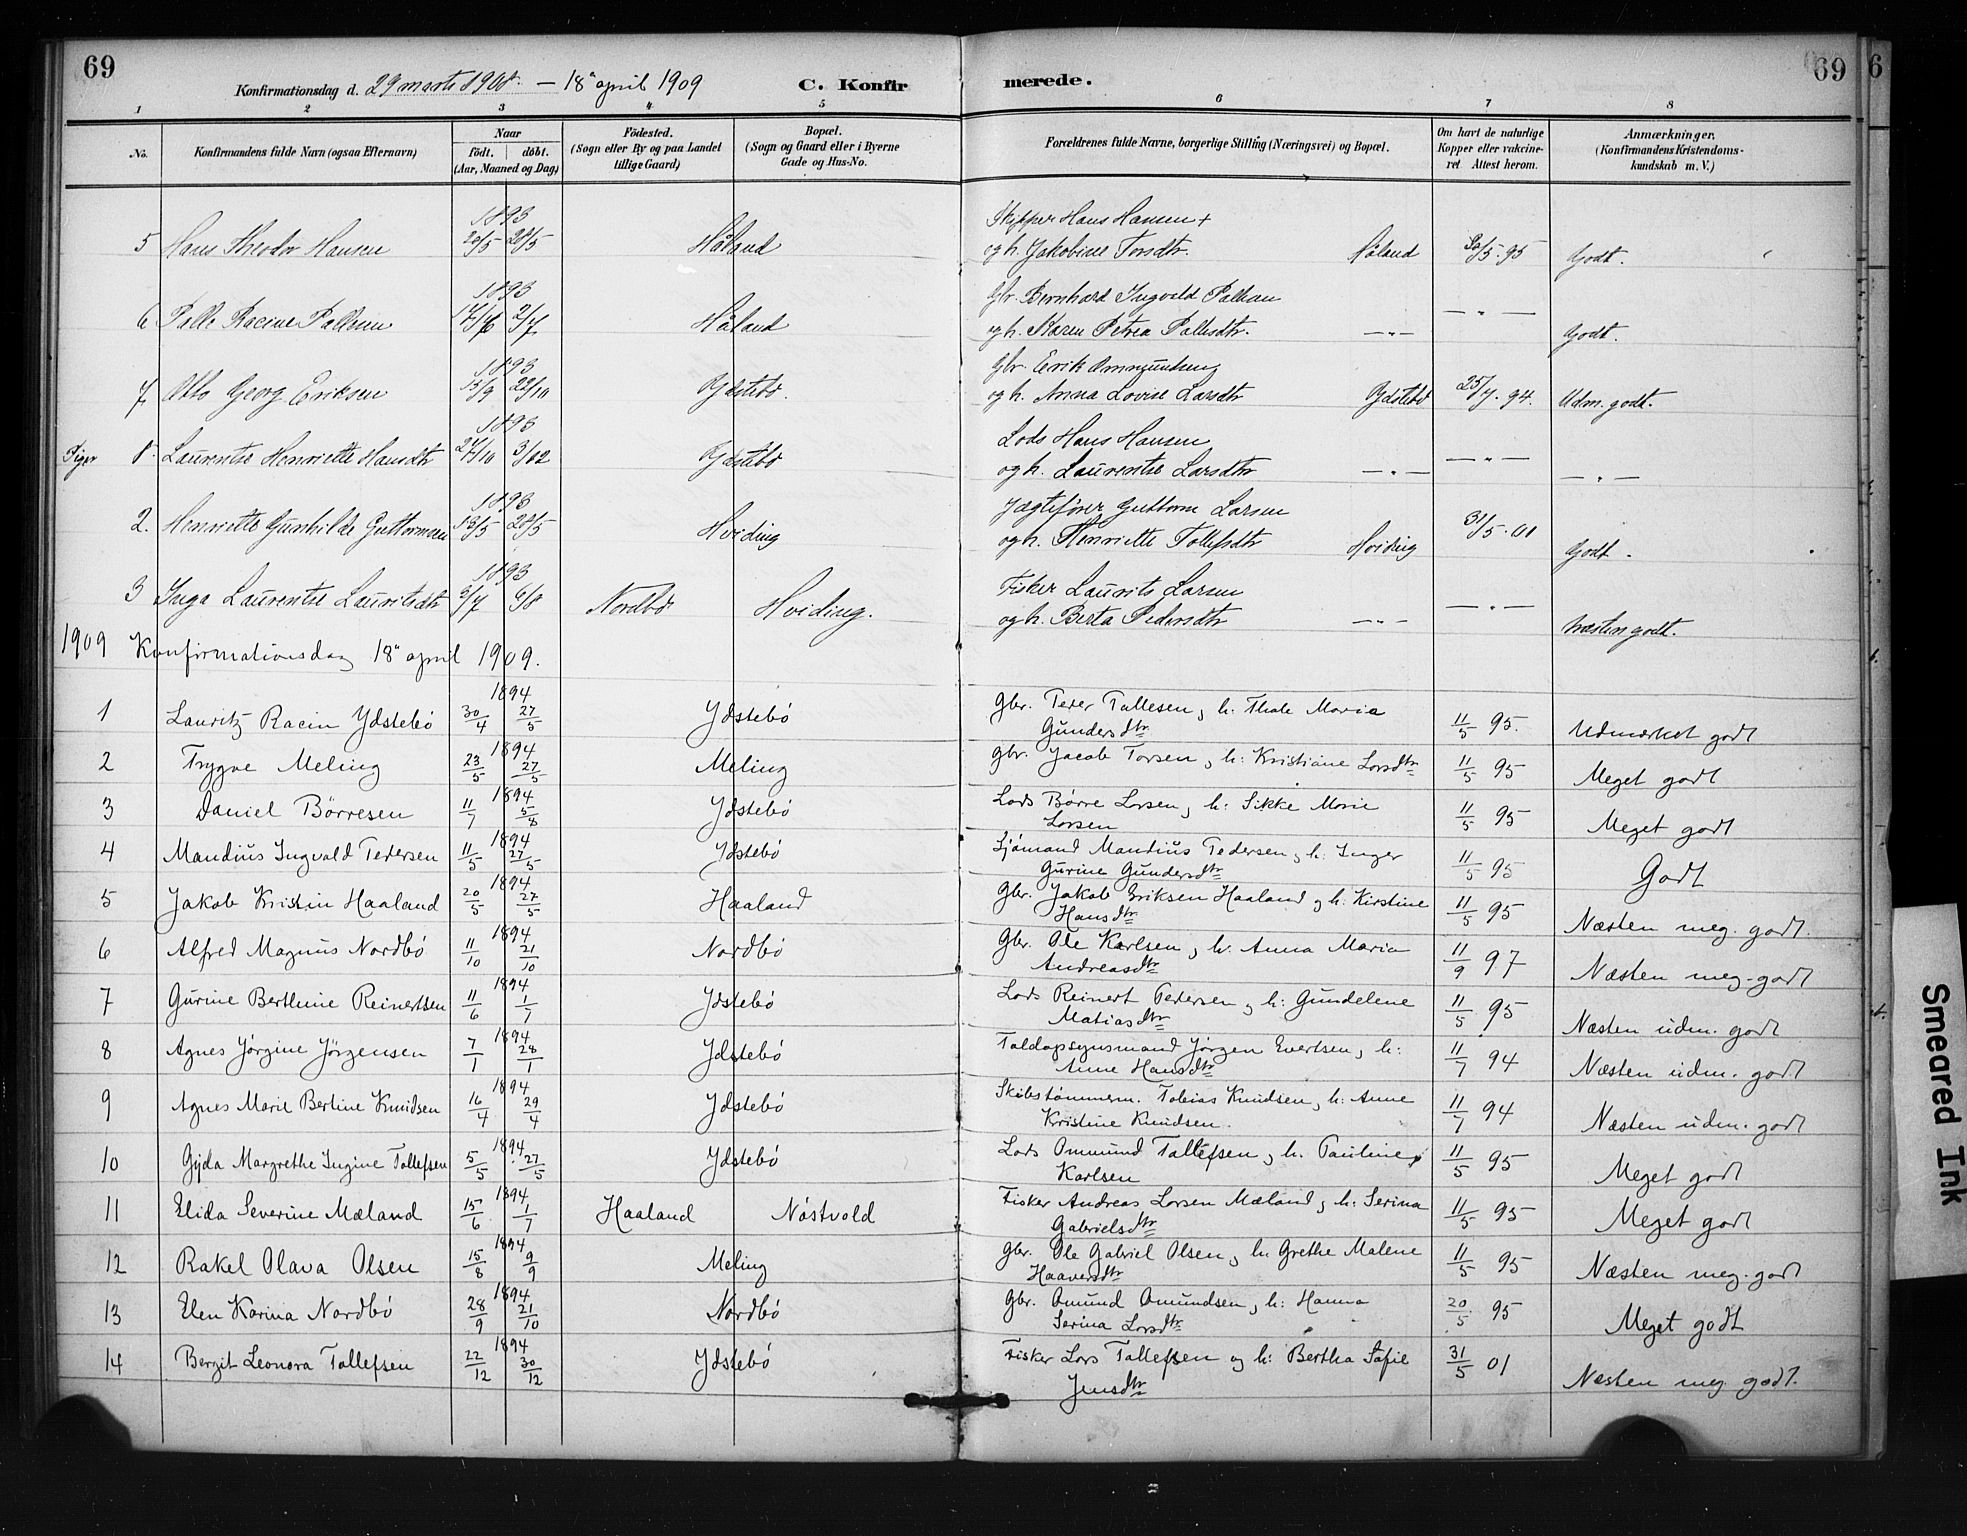 69
Konfirmationsdag d. 29 marts 1908. – 18de april 1909
C. Konfirmerede.
69
1 2 3 4 5 6 7 8
No.
Konfirmandens fulde Navn (ogsaa Efternavn)
Naar
födt. | döbt.
(Aar, Maaned og Dag)
Födested.
(Sogn eller By og paa Landet
tillige Gaard)
Bopæl.
(Sogn og Gaard eller i Byerne
Gade og Hus-No.
Forældrenes fulde Navne, borgerlige Stilling (Næringsvei) og Bopæl.
Om havt de naturlige
Kopper eller vakcine-
ret Attest herom.
Anmærkninger.
(Konfirmandens Kristendoms-
kundskab m. V.)
5 Hans Theodor Hansen 1893 20/5 28/5 Håland Skipper Hans Hansen +
og h. Jakobine Torsdtr. Håland 30/5 95 Godt.
6 Palle Racine Pallesen 1893 17/6 2/7 Håland Gbr. Bernhard Ingvald Pallesen
og h. Karen Petrea Pallesdtr. —"— —"— Godt.
7 Otto Georg Eriksen 1893 15/9 22/10 Ydstebö. Gbr. Erik Ommundsen
og h. Anna Lovise Larsdtr Ydstebö 25/7. 94. Udm. godt.
Piger 1. Laurentse Henriette Hansdtr 1893 27/10 3/12 Ydstebö Lods Hans Hansen
og h. Laurentse Larsdtr —"— —"— —"—
2. Henriette Gunhilde Guttormsen 1893 13/5 28/5 Hviding Jægtefører Guttorm Larsen
og h. Henriette Tollefsdtr Hviding 31/5. 01 Godt.
3 Inga Laurentse Lauritsdtr 1893 3/7 6/8 Nordbö Hviding. Fisker Laurits Larsen
og h. Berta Pedersdtr —"— —"— Næsten godt.
1909 Konfirmationsdag 18de april 1909.
1 Lauritz Racin Ydstebö 1894 30/4 27/5 Ydstebö Gbr. Peder Tallesen, h: Thale Maria
Gundersdtr 11/5 95. Udmærket godt
2 Trygve Meling 1894 23/5 27/5 Meling Gbr. Jacob Torsen, h: Kristiane Larsdtr 11/5 95 Meget godt
3 Daniel Börresen 1894 11/7 5/8 Ydstebö Lods Börre Larsen, h: Sikke Marie
Larsen 11/5 95 Meget godt
4 Mandius Ingvald Pedersen 1894 11/5 27/5 Ydstebö Sjömand Mandius Pedersen, h: Inger
Gurine Gundersdtr 11/5 95 Godt
5 Jakob Kristin Haaland 1894 20/5 27/5 Haaland Gbr. Jakob Eriksen Haaland og h: Kirstine
Hansdtr 11/5 95 Næsten meg. godt.
6 Alfred Magnus Nordbö 1894 11/10 21/10 Nordbö Gbr. Ole Karlsen, h: Anna Maria
Andreasdtr 11/9 97 Næsten meg. godt
7 Gurine Berthine Reinertsen 1894 11/6 1/7 Ydstebö Lods Reinert Pedersen, h: Gundelene
Matiasdtr 11/5 95 Næsten udm. godt
8 Agnes Jörgine Jörgensen 1894 7/1 28/1 Ydstebö Toldopsynsmand Jörgen Evertsen, h:
Anne Hansdtr 11/7 94 Næsten udm. godt
9 Agnes Marie Bertine Knudsen 1894 16/4 29/4 Ydstebö Skibstömmerm. Tobias Knudsen, h: Anne
Kristine Knudsen. 11/7 94 Næsten udm. godt
10 Gyda Margrethe Ingine Tollefsen 1894 5/5 27/5 Ydstebö Lods Ommund Tollefsen, h. Pauline
Karlsen 11/5 95 Meget godt
11 Elida Severine Mæland 1894 15/6 1/7 Haaland Nöstvold Fisker Andreas Larsen Mæland, h: Serina
Gabrielsdtr 11/5 95 Meget godt
12 Rakel Olava Olsen 1894 15/8 9/9 Meling Gbr. Ole Gabriel Olsen, h: Grethe Malene
Haaversdtr 11/5 95 Næsten meg. godt
13 Elen Karina Nordbö 1894 28/9 21/10 Nordbö Gbr. Omund Omundsen, h: Hanna
Serina Larsdtr 20/5 95 Meget godt
14 Bergit Leonora Tollefsen 1894 22/12 30/12 Ydstebö Fisker Lars Tollefsen og h: Bertha Sofie
Jensdtr 31/5 01 Næsten meg. godt.
Smeared Ink